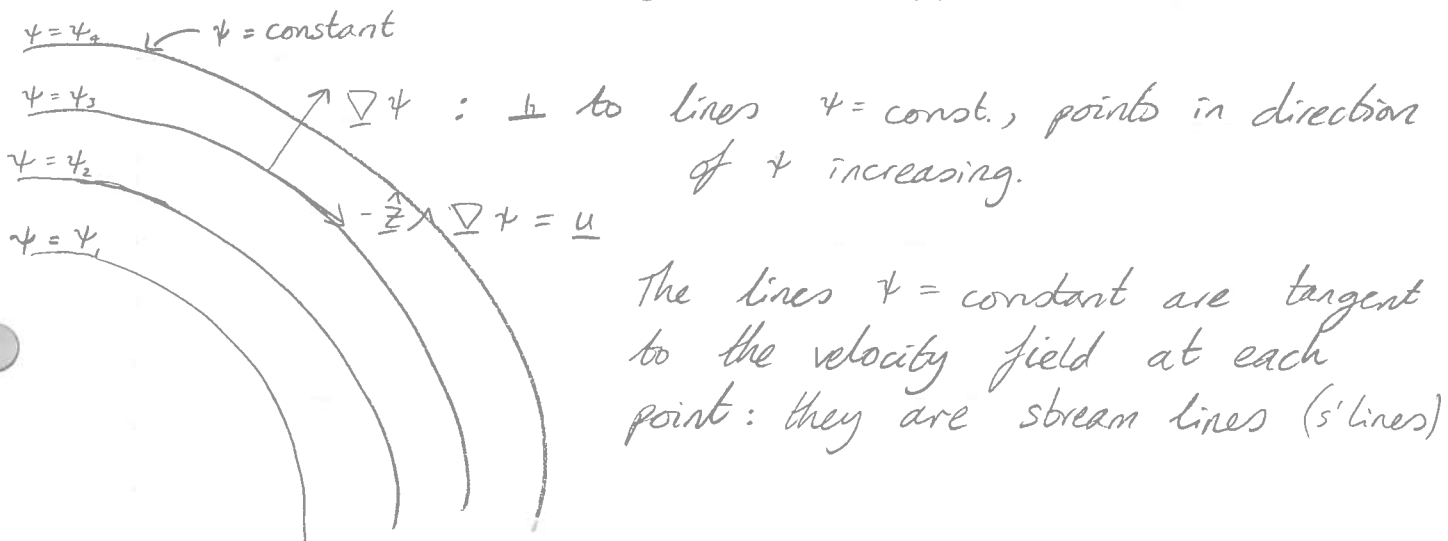 ψ = ψ₄ ψ = constant
ψ = ψ₃ ∇ψ : ⊥ to lines ψ = const., points in direction
of ψ increasing.
ψ = ψ₂
- ẑ ∧ ∇ψ = u
ψ = ψ₁
The lines ψ = constant are tangent
to the velocity field at each
point: they are stream lines (s'lines)